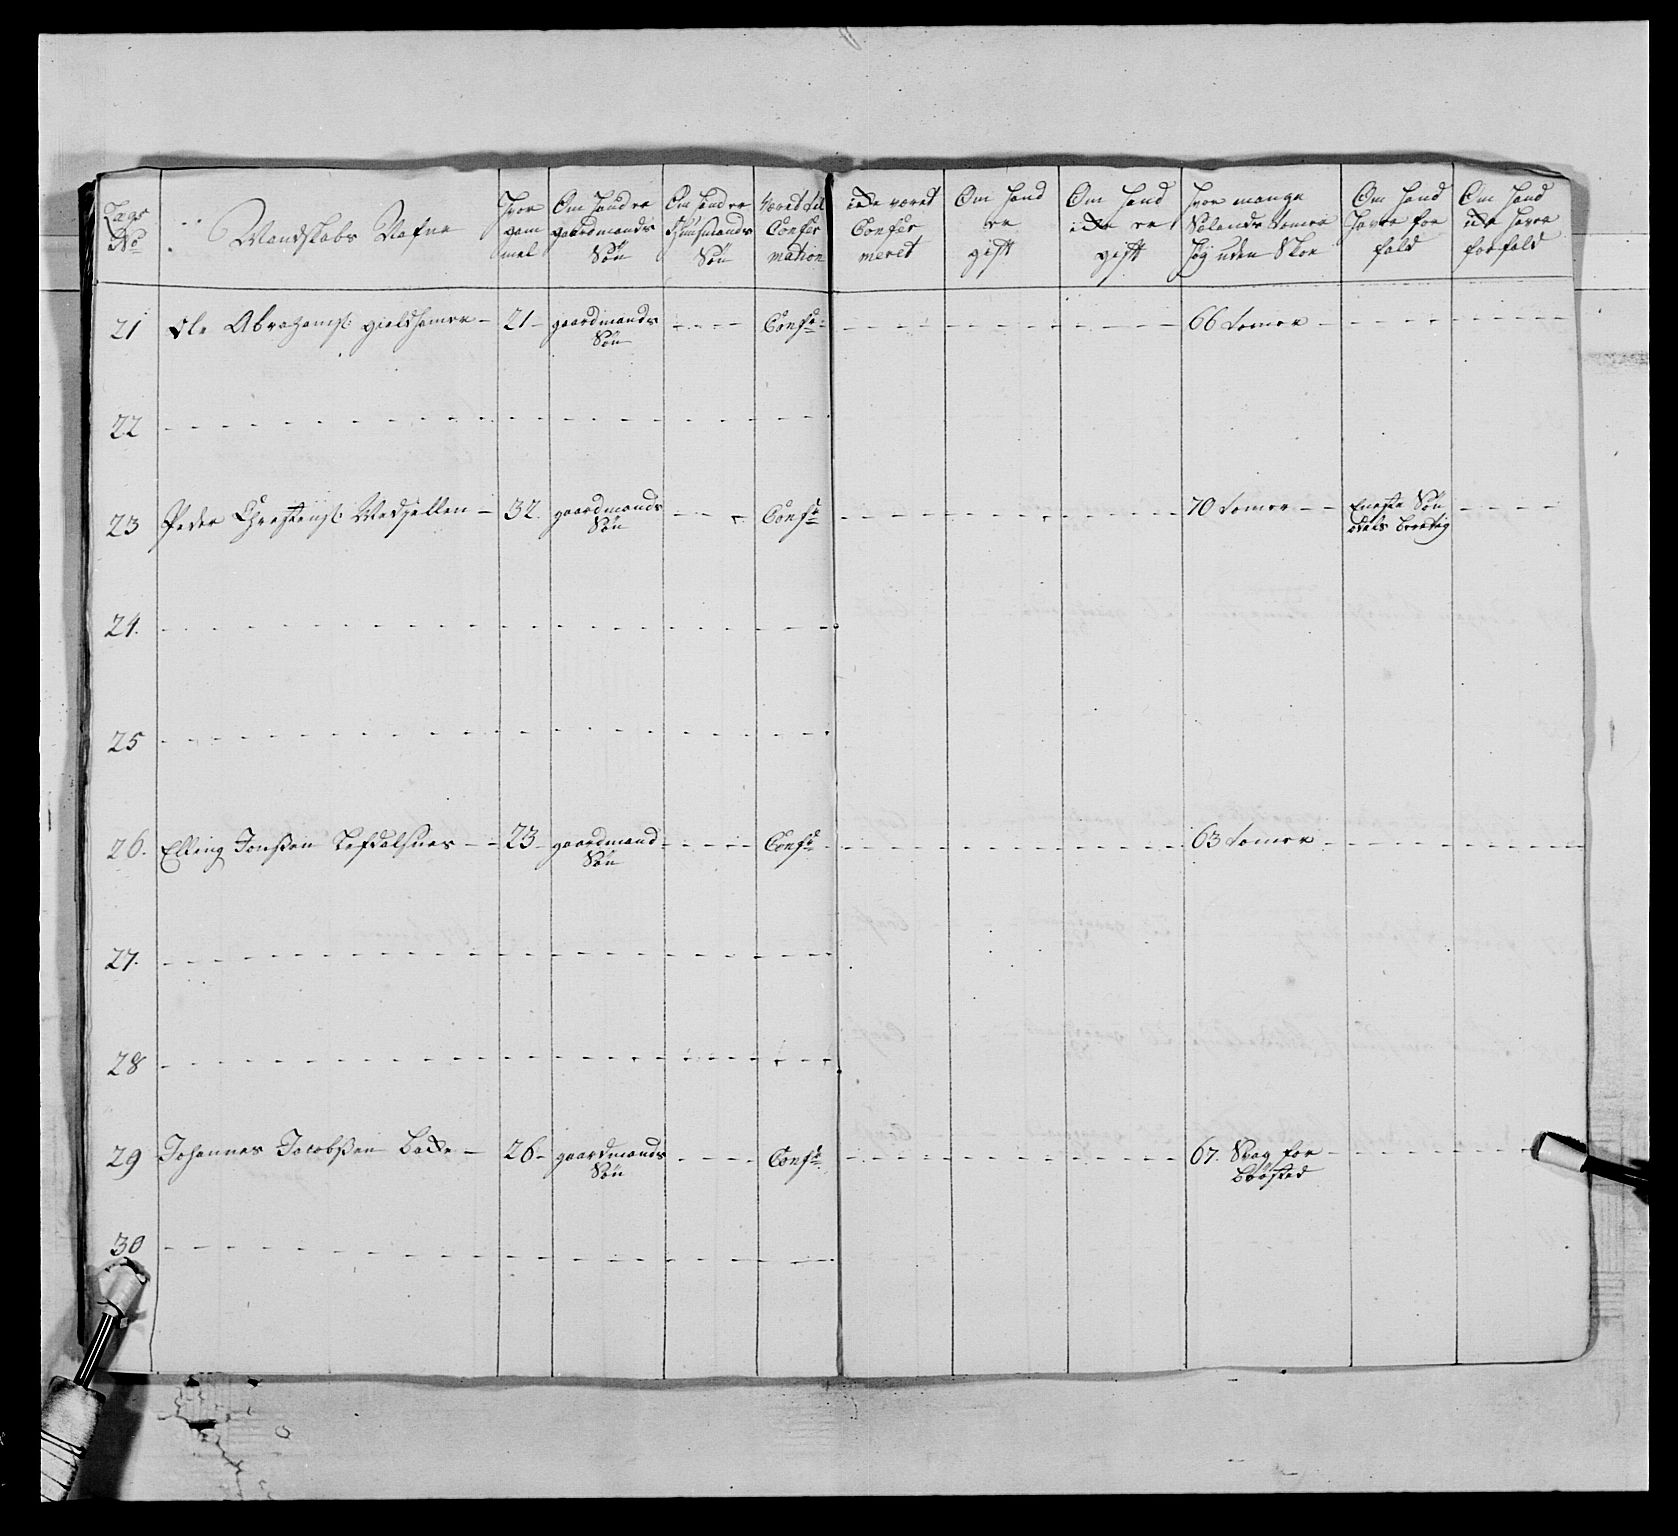 Lægs No
Mandskabs Nafne
Hvor gam mel
Om hand er gaardmands Søn
Om hand er Huusmands Søn
Været til Confer mation
icke været Confer meret
Om hand er gift
Om hand icke er gift
Hvor mange Sælands tomer høy uden Skoe
Om hand have for fald
Om hand icke have forfald
21 Ole Abrahams: gieldhamer - 21 - gaardmands Søn - - - Confr - - - 66 tomer - - -
22 - - -
23 Peder Christens: - 32 gaardmands Søn - - - Confr - - - 70 tomer - - Eneste Søn odels - - -
24. - - -
25 - - -
26. Elling Jonsen - - 23 - gaardmand Søn - - - Confr - - - 63 tomer - - -
27. - - -
28 - - -
29 Johannes Jacobsen Backe - 26 - gaardmands Søn - - - Confr - - - 67. Svag for Brøsted - - -
30 - - -